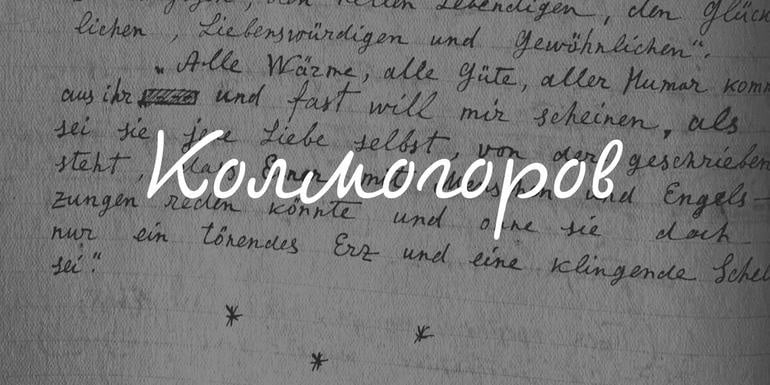 den hellen Lebendigen, den Glück
lichen, Liebenswürdigen und Gewöhnlichen".
"Alle Wärme, alle Güte, aller Humor kom
aus ihr und fast will mir scheinen, als
sei sie jene Liebe selbst, von der geschrieben
Колмогоров
steht, dass Einer mit Menschen und Engels-
zungen reden könnte und ohne sie doch
nur ein tönendes Erz und eine klingende Schel
sei."